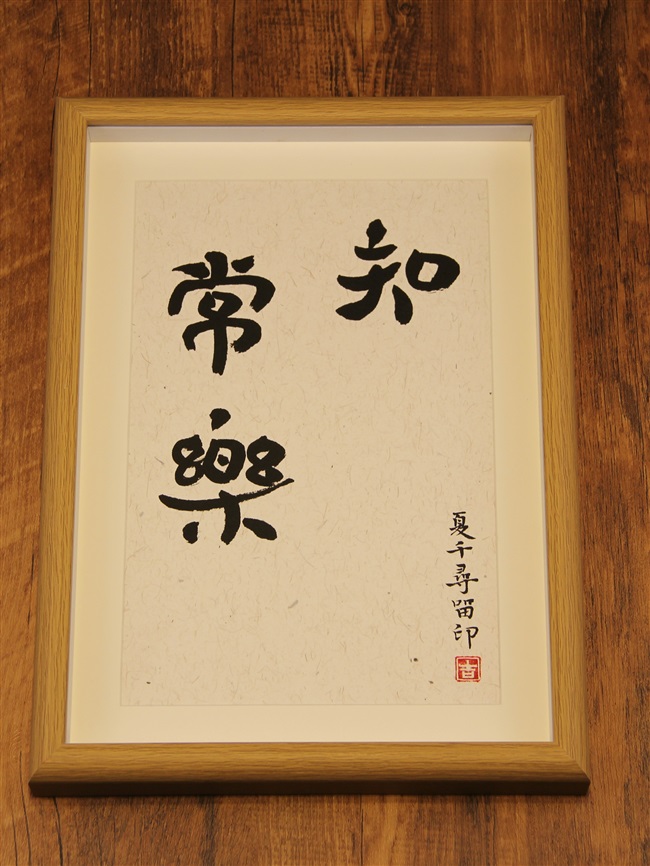 知
常樂
夏千尋留印
吉